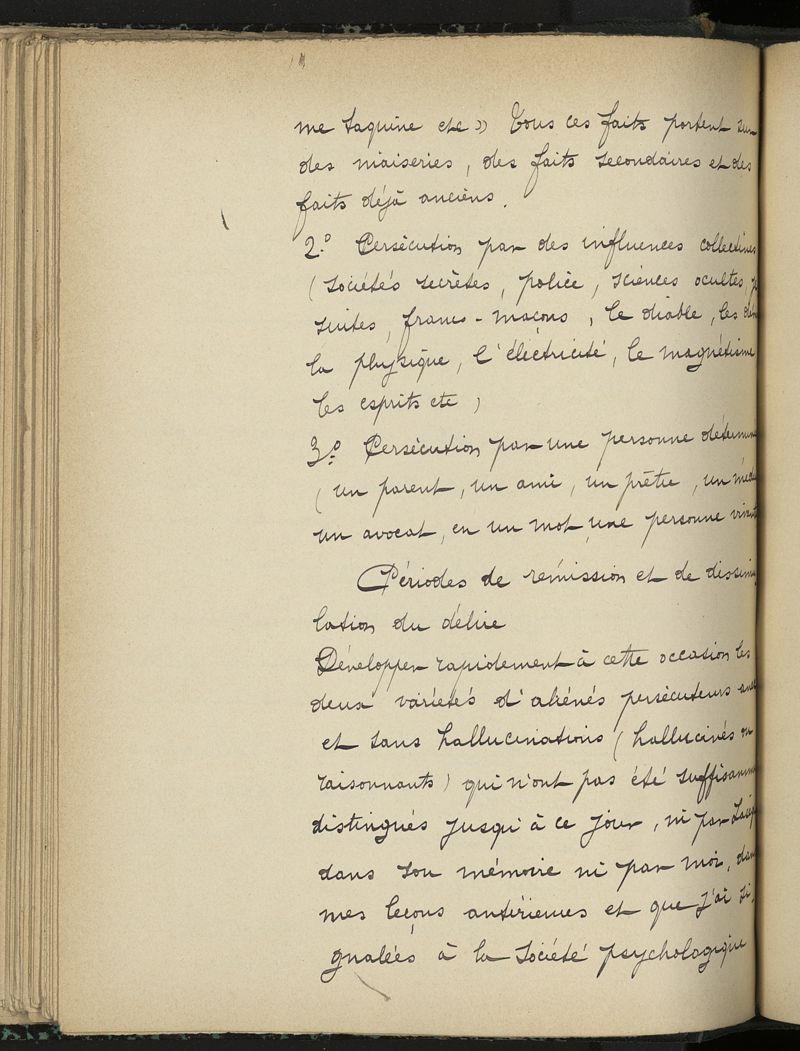 me taquine etc » Tous ces faits portent sur
des niaiseries, des faits secondaires et des
faits déjà anciens.
2.º Persécution par des influences collectives
(sociétés secrètes, police, sciences ocultes,
suites, francs-maçons, le diable, les
la physique, l'éléctricité, le magnétisme
les esprits etc)
3º Persécution par une personne détermin
(un parent, un ami, un prêtre, un méde
un avocat, en un mot une personne vivant
Périodes de rémission et de dissimu
lation du délire
Développer rapidement à cette occasion les
deux variétés d'aliénés persécuteurs avec
et sans hallucinations (hallucinés ou
raisonnants) qui n'ont pas été suffisamm
distingués jusqu'à ce jour, ni par Lasèg
dans son mémoire ni par moi, dans
mes leçons antérieures et que j'ai si.
gnalées à la Société psychologique